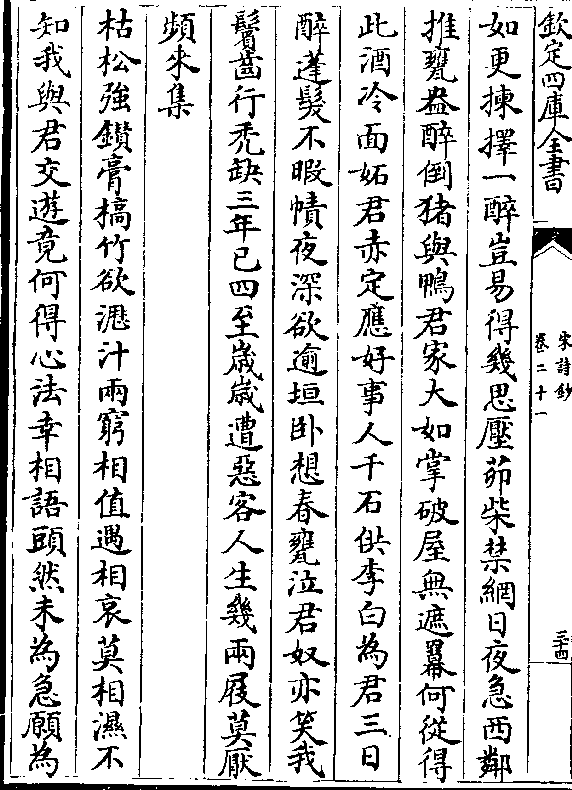 欽定四庫全書
宋詩鈔
卷二十一
三十四
如更揀擇一醉豈易得幾思壓茆柴禁網日夜急西鄰
推甕盎醉倒猪與鴨君家大如掌破屋無遮羃何從得
此酒冷面妬君赤定應好事人千石供李白為君三日
醉蓬髮不暇幘夜深欲逾垣卧想春甕泣君奴亦笑我
鬢齒行禿缺三年已四至嵗嵗遭惡客人生幾兩屐莫厭
頻來集
枯松強鑚膏槁竹欲瀝汁兩窮相值遇相哀莫相濕不
知我與君交遊竟何得心法幸相語頭然未為急願為